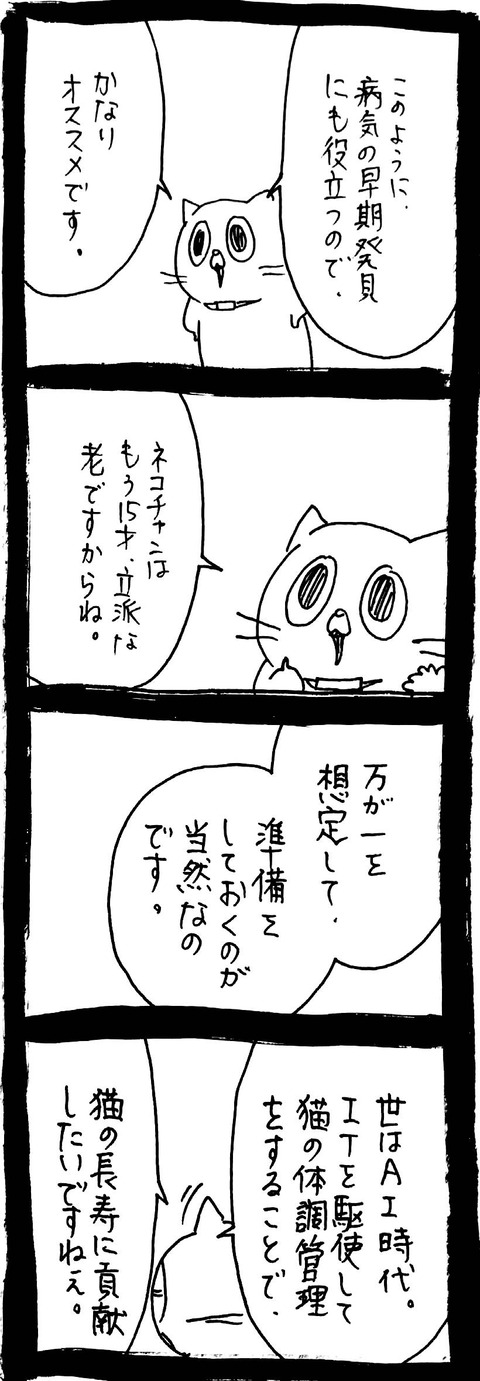 このように、
病気の早期発見
にも役立つので、
かなり
オススメです。
ネコチャンは
もう15才、立派な
老ですからね。
万が一を
想定して、
準備を
しておくのが
当然なの
です。
世はAI時代。
ITを駆使して
猫の体調管理
をすることで、
猫の長寿に貢献
したいですねぇ。